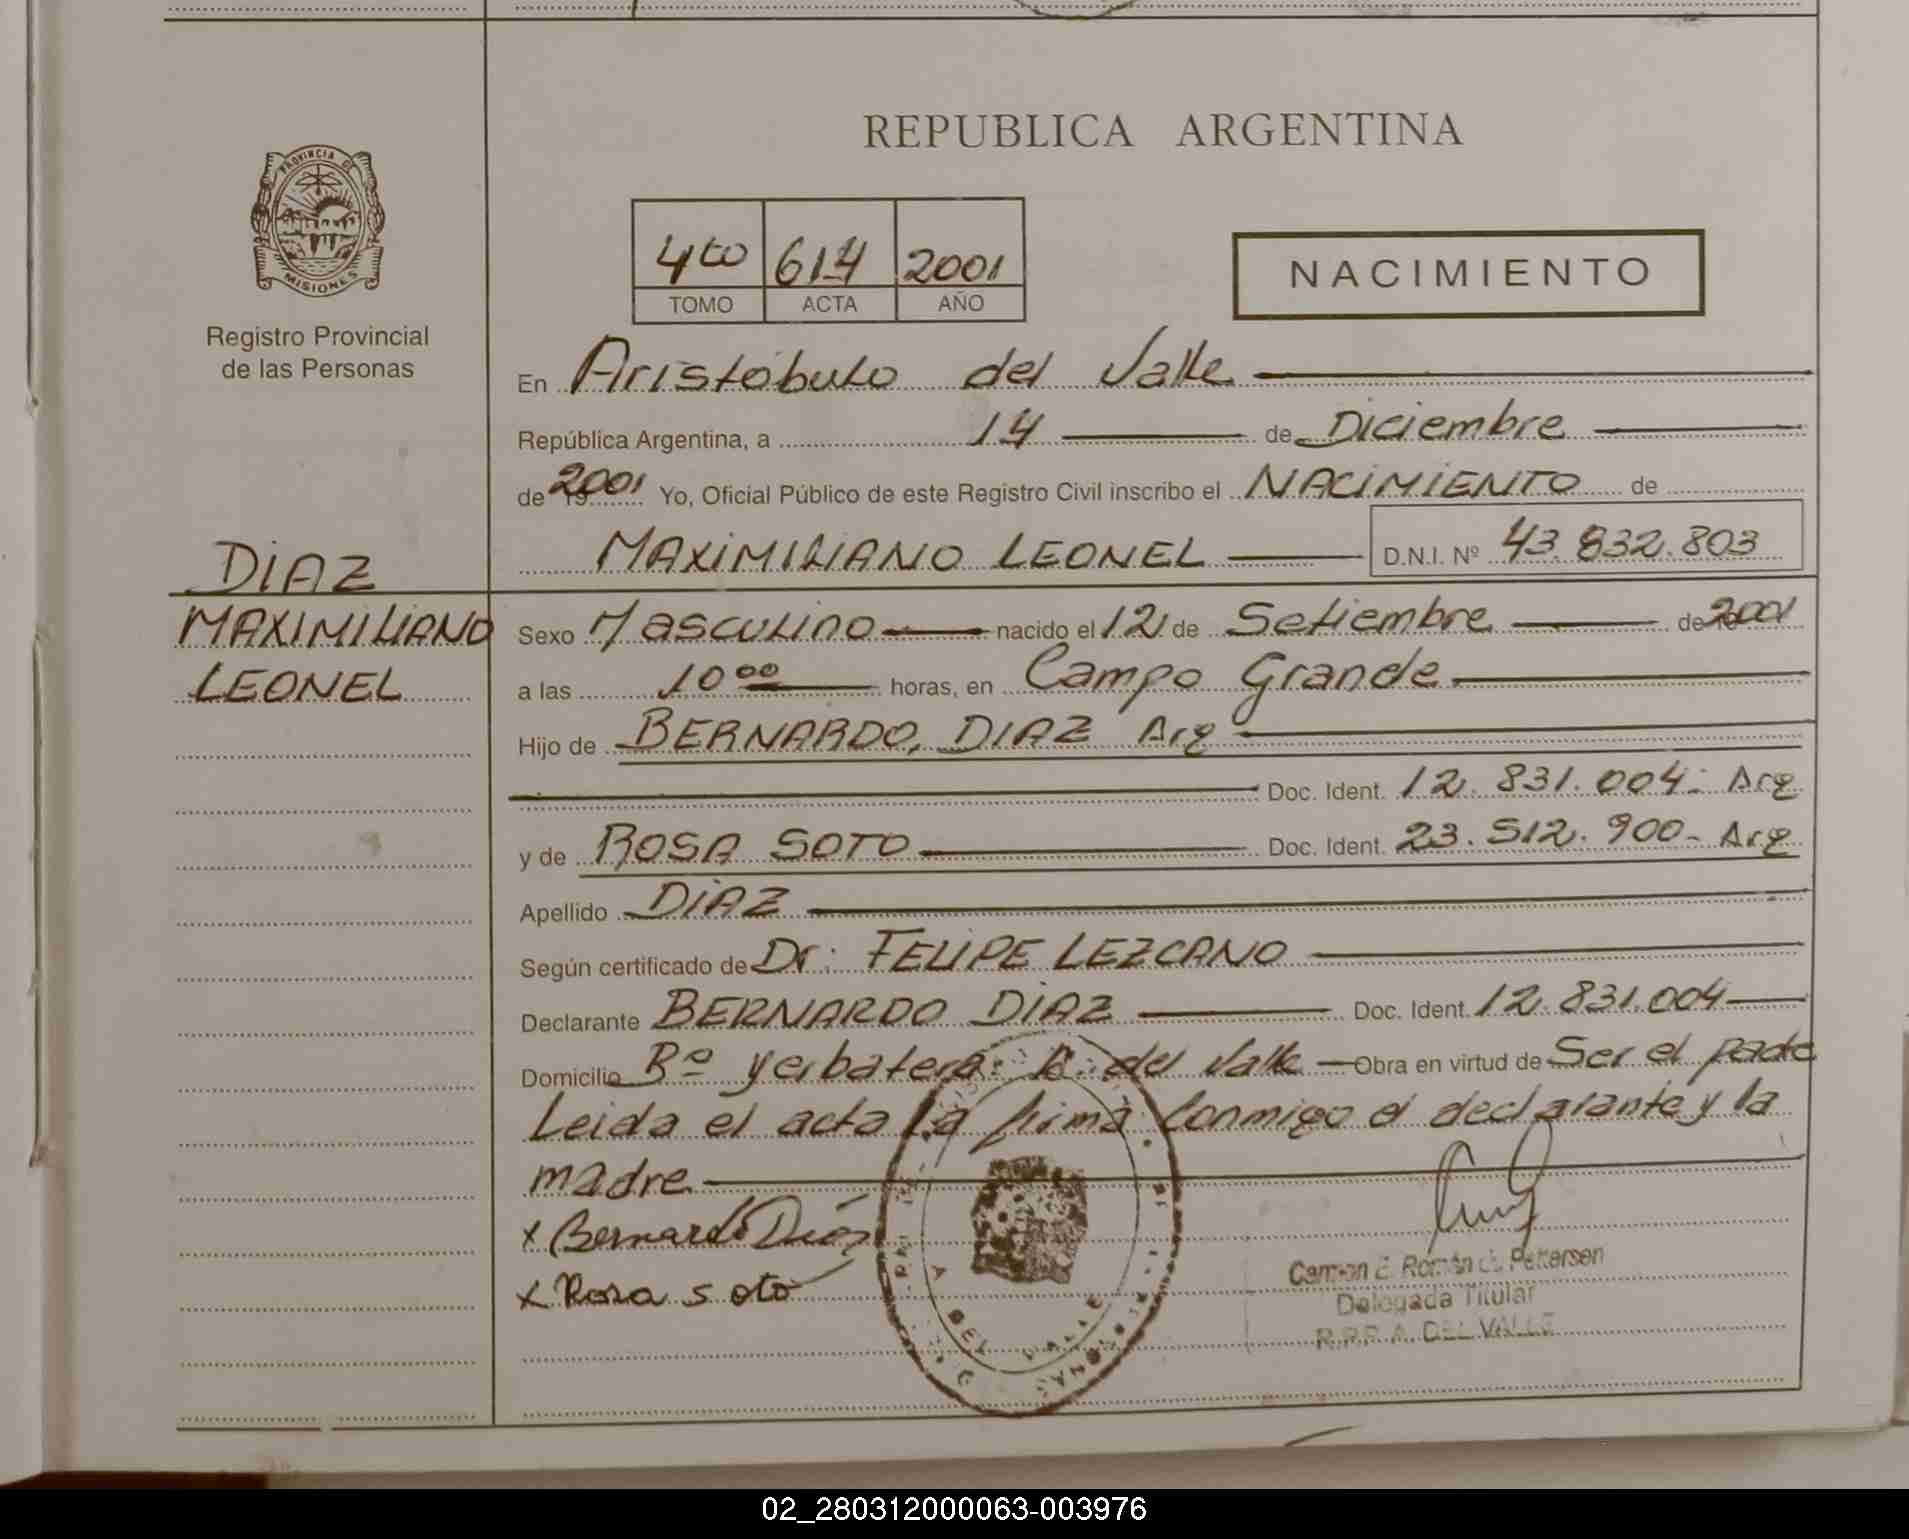 PROVINCIA DE
MISIONES
Registro Provincial
de las Personas
DIAZ
MAXIMILIANO
LEONEL
REPUBLICA ARGENTINA
4to 614 2001
TOMO ACTA AÑO
NACIMIENTO
En Aristóbulo del Valle
República Argentina, a 14 de Diciembre
de 2001 Yo, Oficial Público de este Registro Civil inscribo el NACIMIENTO de
MAXIMILIANO LEONEL D.N.I. Nº 43.832.803
Sexo Masculino nacido el 12 de Setiembre de 2001
a las 10 00 horas, en Campo Grande
Hijo de BERNARDO, DIAZ Arg
Doc. Ident. 12.831.004- Arg
y de ROSA SOTO Doc. Ident. 23.512.900- Arg
Apellido DIAZ
Según certificado de Dr: FELIPE LEZCANO
Declarante BERNARDO DIAZ Doc. Ident. 12.831.004
Domicilio Bº yerbatera: A. del Valle Obra en virtud de Ser el padre
Leida el acta La firma Conmigo el declarante y la
madre
x Bernardo Díaz
x Rosa soto
Carmen E. Román de Pettersen
Delegada Titular
R.P.P. A. DEL VALLE
A DEL VALLE
02_280312000063-003976